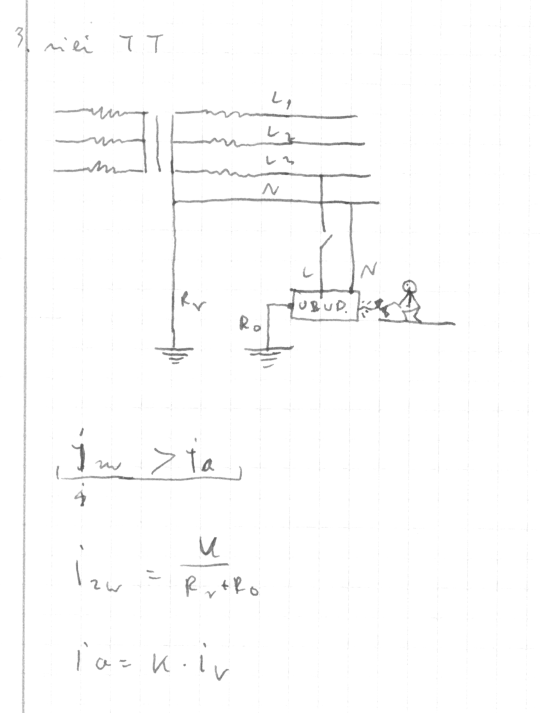 3. sieć TT
L1
L2
L3
N
L N
Rr
Ro
OBUD.
izw > ia
izw = U / Rr+Ro
ia = K · ir